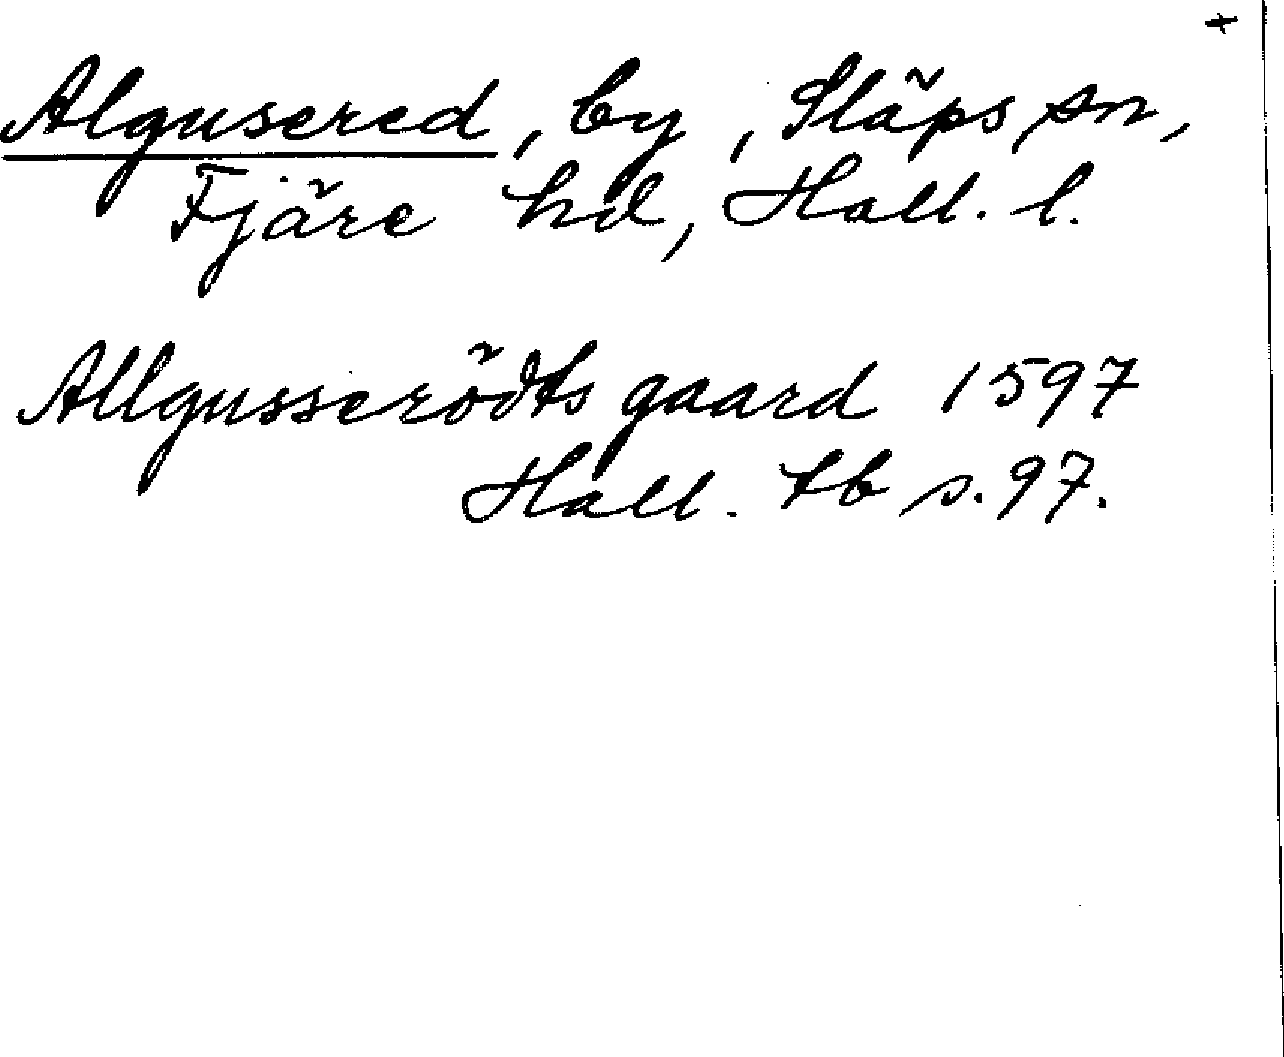 +
Algusered, by, Släps sn,
Fjäre hd, Hall. l.
Allgusserödts gaard 1597
Hall. tb s. 97.